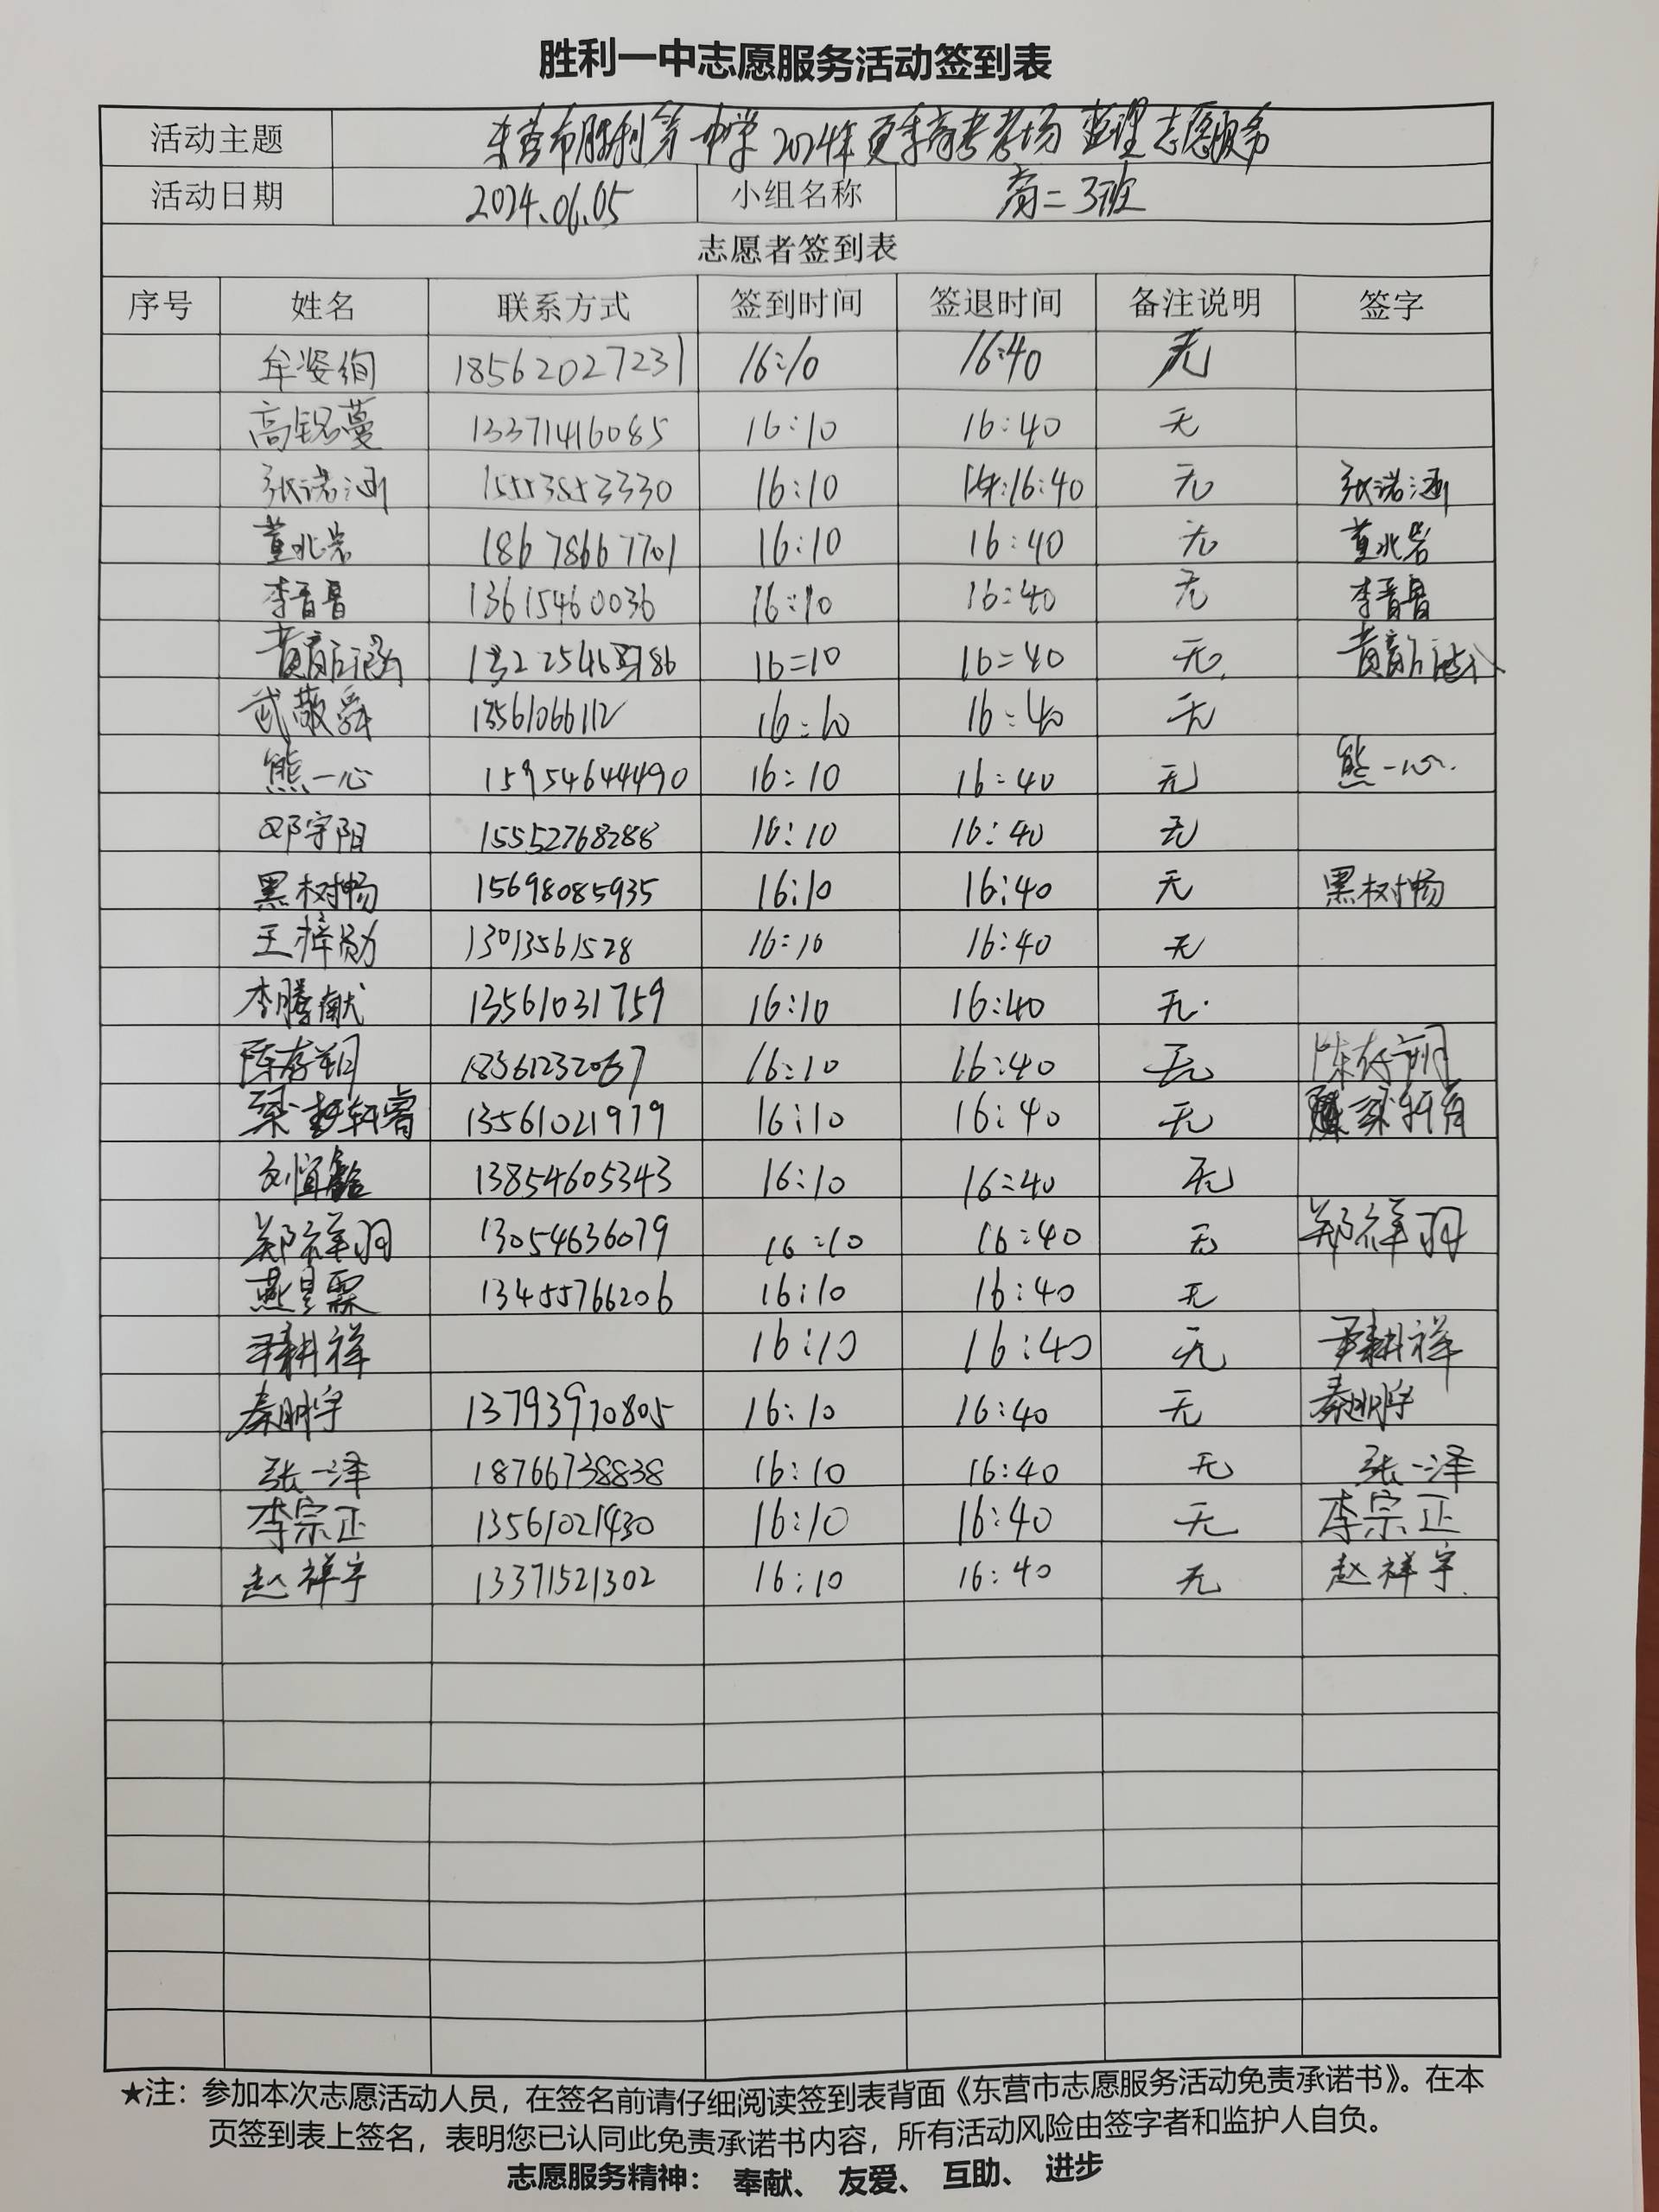 胜利一中志愿服务活动签到表
活动主题 东营市胜利第一中学2024年夏季高考考场整理志愿服务
活动日期 2024.06.05 小组名称 高二3班
志愿者签到表
序号 姓名 联系方式 签到时间 签退时间 备注说明 签字
牟姿绚 18562027231 16:10 16:40 无
高铭蔓 13371416085 16:10 16:40 无
张诺涵 15553853330 16:10 16:40 无 张诺涵
董兆岩 18678667701 16:10 16:40 无 董兆岩
李晋鲁 13615460036 16:10 16:40 无 李晋鲁
黄 涵 16:10 16:40 无 黄
武敬舜 13561066112 16:10 16:40 无
熊一心 15954644490 16:10 16:40 无 熊一心
邓宇阳 15552768288 16:10 16:40 无
黑树畅 15698085935 16:10 16:40 无 黑树畅
王梓勋 13013561528 16:10 16:40 无
李腾献 13561031759 16:10 16:40 无
陈存朔 16:10 16:40 无 陈存朔
梁轩睿 13561021979 16:10 16:40 无 梁轩睿
刘恒 13854605343 16:10 16:40 无
郑祥羽 13054636079 16:10 16:40 无 郑祥羽
燕昱霖 13455766206 16:10 16:40 无
尹耕祥 16:10 16:40 无 尹耕祥
秦明宇 13793970805 16:10 16:40 无 秦明宇
张一泽 18766738838 16:10 16:40 无 张一泽
李宗正 13561021430 16:10 16:40 无 李宗正
赵祥宇 13371521302 16:10 16:40 无 赵祥宇
★注：参加本次志愿活动人员，在签名前请仔细阅读签到表背面《东营市志愿服务活动免责承诺书》。在本
页签到表上签名，表明您已认同此免责承诺书内容，所有活动风险由签字者和监护人自负。
志愿服务精神： 奉献、 友爱、 互助、 进步